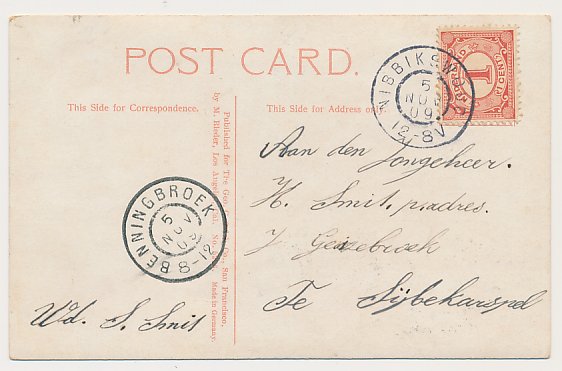 POST CARD.
This Side for Correspondence.
This Side for Address only.
NIBBIKSWOUD
5
NOV
09
12-8V
NEDERLAND
1
CENT
Published for The Geo. Co. San Francisco,
by M. Rieder, Los Angeles, Cal. No.
Made in Germany.
BENNINGBROEK
5
NOV
09
8-12
Aan den Jongeheer.
H. Smit. p.adres.
J
Te Sijbekarspel
Wd. S. Smit